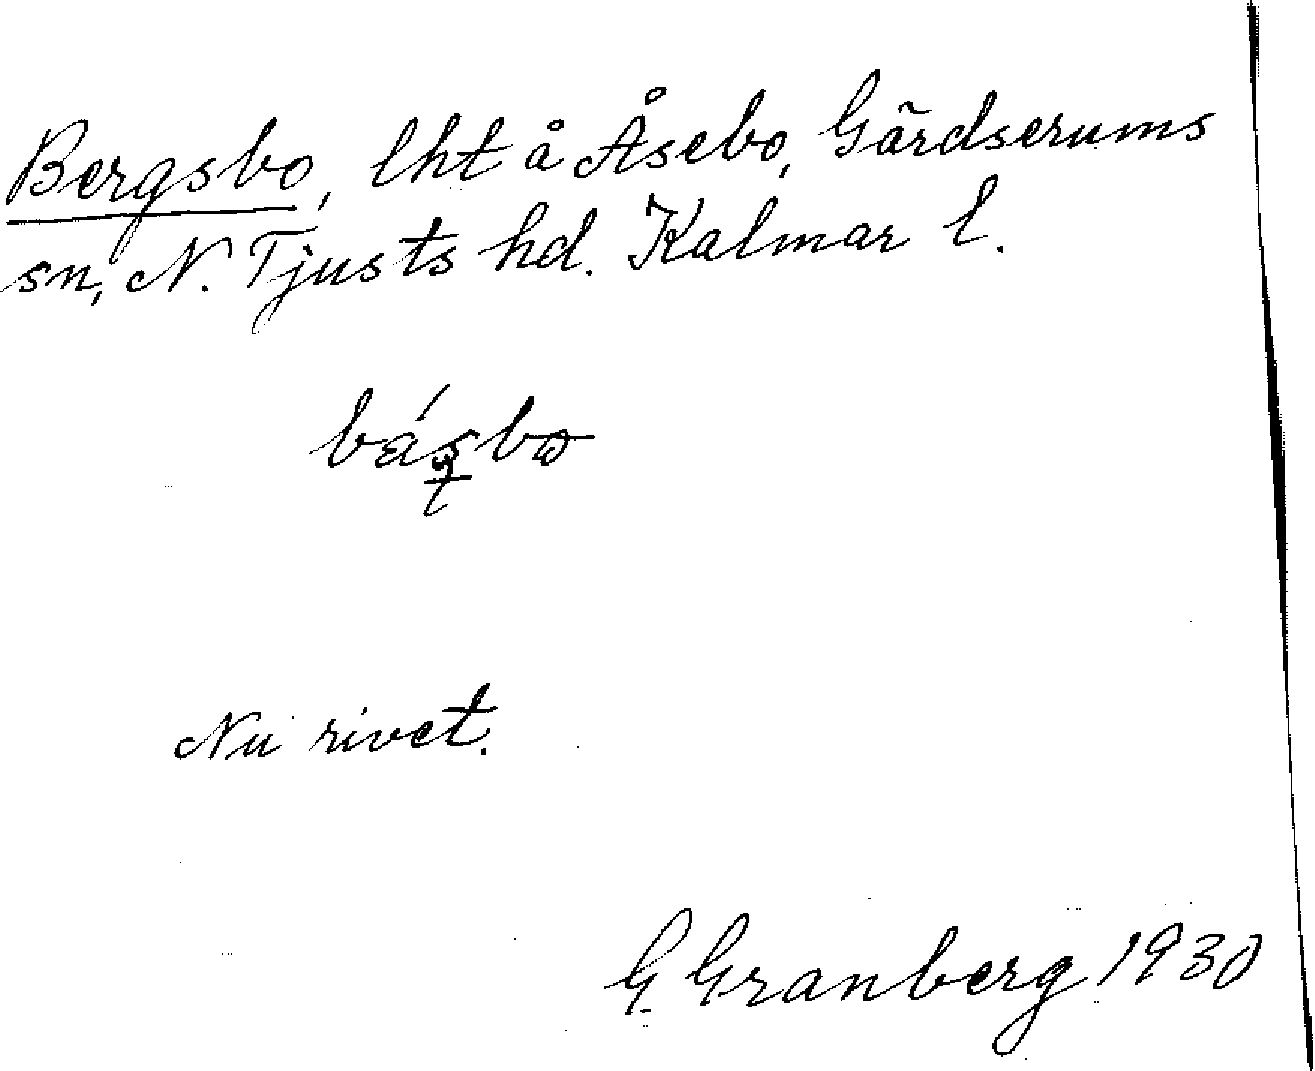 Bergsbo, lht å Åsebo, Gärdserums
sn, N. Tjusts hd. Kalmar l.
básbo
Nu rivet.
G. Granberg 1930